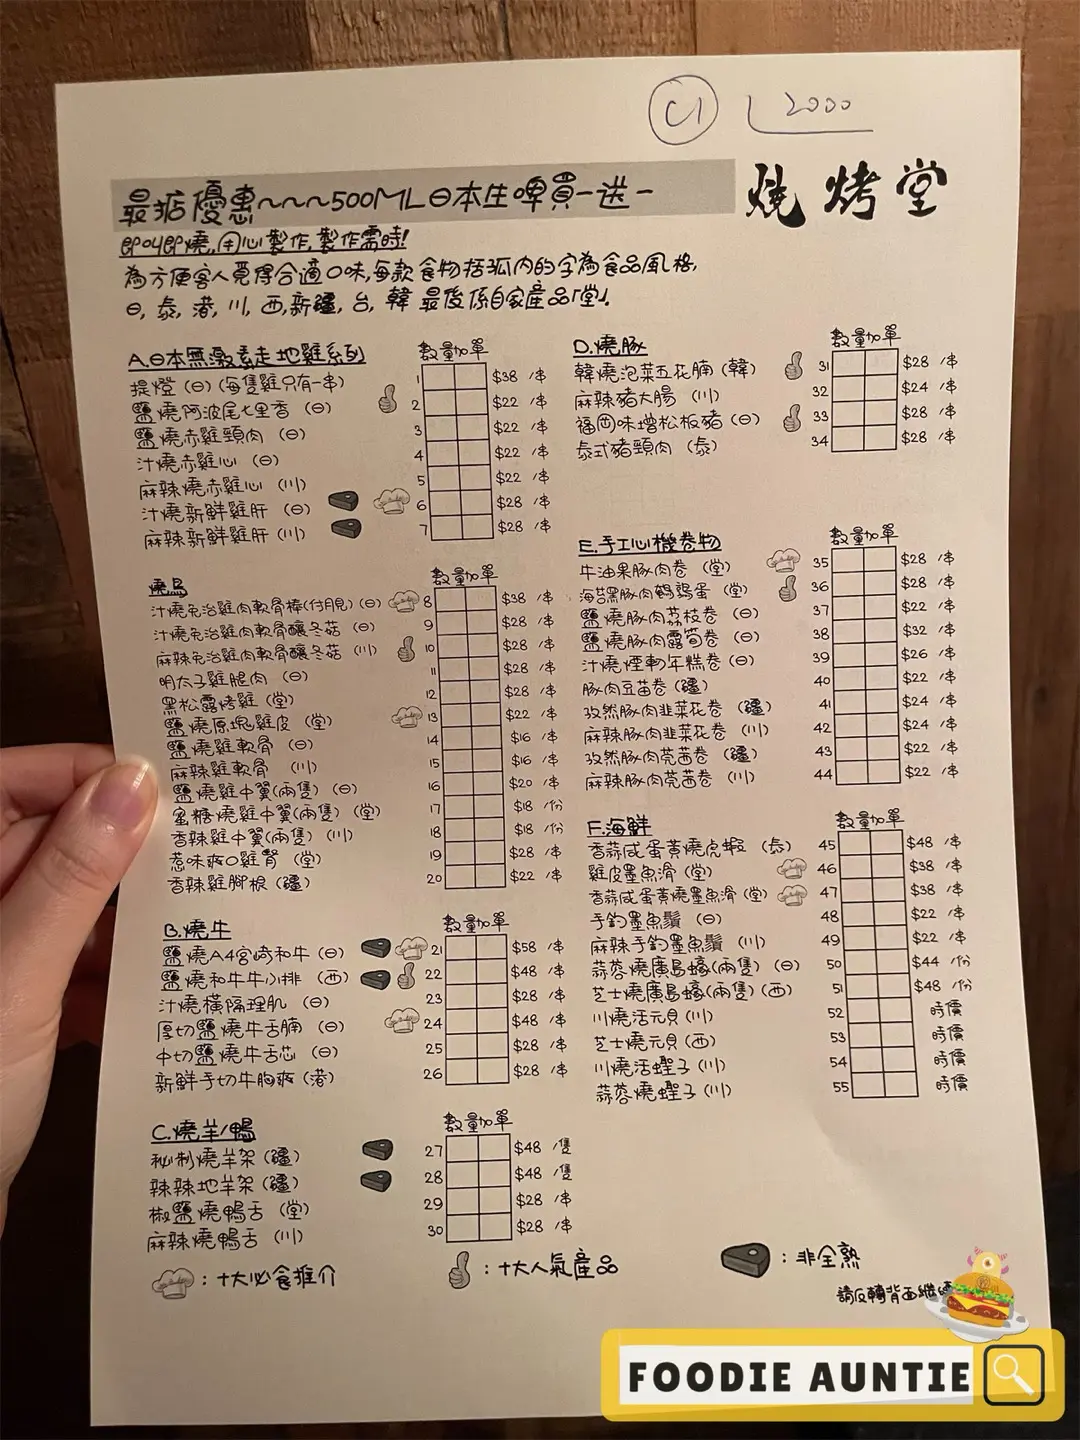 C1 2000
燒烤堂
最掂優惠~~~500ML日本生啤買一送一
即叫即燒,用心製作,製作需時!
為方便客人覓得合適口味,每款食物括弧內的字為食品風格,
日,泰,港,川,西,新疆,台,韓 最後係自家產品「堂」.
A.日本無激素走地雞系列 數量 加單
提燈(日)(每隻雞只有一串) 1 $38 /串
鹽燒阿波尾七里香(日) 2 $22 /串
鹽燒赤雞頸肉(日) 3 $22 /串
汁燒赤雞心(日) 4 $22 /串
麻辣燒赤雞心(川) 5 $22 /串
汁燒新鮮雞肝(日) 6 $28 /串
麻辣新鮮雞肝(川) 7 $28 /串
燒鳥 數量 加單
汁燒免治雞肉軟骨棒(付月見)(日) 8 $38 /串
汁燒免治雞肉軟骨釀冬菇(日) 9 $28 /串
麻辣免治雞肉軟骨釀冬菇(川) 10 $28 /串
明太子雞腿肉(日) 11 $28 /串
黑松露烤雞(堂) 12 $28 /串
鹽燒原塊雞皮(堂) 13 $22 /串
鹽燒雞軟骨(日) 14 $16 /串
麻辣雞軟骨(川) 15 $16 /串
鹽燒雞中翼(兩隻)(日) 16 $20 /串
蜜糖燒雞中翼(兩隻)(堂) 17 $18 /份
香辣雞中翼(兩隻)(川) 18 $18 /份
惹味爽口雞腎(堂) 19 $28 /串
香辣雞腳根(疆) 20 $22 /串
B.燒牛 數量 加單
鹽燒A4宮崎和牛(日) 21 $58 /串
鹽燒和牛牛小排(西) 22 $48 /串
汁燒橫隔理肌(日) 23 $28 /串
厚切鹽燒牛舌腩(日) 24 $48 /串
中切鹽燒牛舌芯(日) 25 $28 /串
新鮮手切牛胸爽(港) 26 $28 /串
C.燒羊/鴨 數量 加單
秘制燒羊架(疆) 27 $48 /隻
辣辣地羊架(疆) 28 $48 /隻
椒鹽燒鴨舌(堂) 29 $28 /串
麻辣燒鴨舌(川) 30 $28 /串
D.燒豚 數量 加單
韓燒泡菜五花腩(韓) 31 $28 /串
麻辣豬大腸(川) 32 $24 /串
福岡味增松板豬(日) 33 $28 /串
泰式豬頸肉(泰) 34 $28 /串
E.手工心機卷物 數量 加單
牛油果豚肉卷(堂) 35 $28 /串
海苔黑豚肉鵪鶉蛋(堂) 36 $28 /串
鹽燒豚肉荔枝卷(日) 37 $22 /串
鹽燒豚肉露筍卷(日) 38 $32 /串
汁燒煙軔年糕卷(日) 39 $26 /串
豚肉豆苗卷(疆) 40 $22 /串
孜然豚肉韭菜花卷(疆) 41 $24 /串
麻辣豚肉韭菜花卷(川) 42 $24 /串
孜然豚肉芫茜卷(疆) 43 $22 /串
麻辣豚肉芫茜卷(川) 44 $22 /串
F.海鮮 數量 加單
香蒜咸蛋黃燒虎蝦(泰) 45 $48 /串
雞皮墨魚滑(堂) 46 $38 /串
香蒜咸蛋黃燒墨魚滑(堂) 47 $38 /串
手釣墨魚鬚(日) 48 $22 /串
麻辣手釣墨魚鬚(川) 49 $22 /串
蒜蓉燒廣島蠔(兩隻)(日) 50 $44 /份
芝士燒廣島蠔(兩隻)(西) 51 $48 /份
川燒活元貝(川) 52 時價
芝士燒元貝(西) 53 時價
川燒活蟶子(川) 54 時價
蒜蓉燒蟶子(川) 55 時價
:十大必食推介 :十大人氣產品 :非全熟
請反轉背面繼續
FOODIE AUNTIE